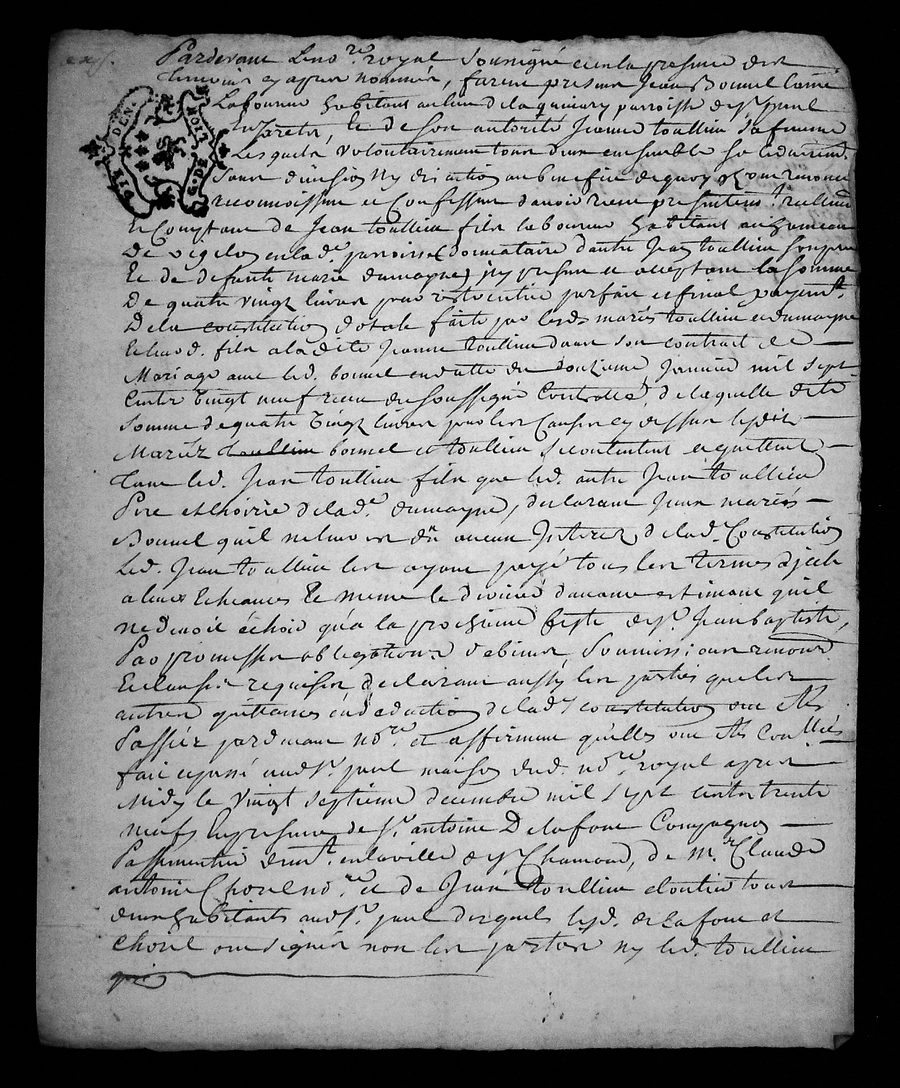 Pardevant le no.re royal soussigné et en la presence des
temoins cy apres nommés, furent presens Jean Bonnel
Laboureur habitant au lieu de la parroisse de s.t paul
en Jarets, et de son autorité Jeanne toullieu sa femme
Lesquels volontairement tous deux ensemble solidairem.t
sans division ny discution au benefice de quoy renoncent
reconnoissent et Confessent d'avoir receu presentem.t reellem.t
et Comptant de Jean toullieu fils laboureur habitant au hameau
De en lad. parroisse donnataire d'autre Jean toullieu son pere
Et de deffunte marie dumayne, icy present et acceptant la somme
De quatre vingt livres pour reste entier parfait et final payem.t
De la constitution dotale faite par lesd. mariés toullieu et dumayne
a ladite Jeanne toullieu dans son contract de
Mariage avec led. bonnel en datte du Janvier mil sept
Cents vingt neuf receu du soussigné Controllé, de laquelle dite
somme de quatre vingt livres pour les Causes cy dessus lesdits
Mariéz toullieu bonnel et toullieu se contentent et quittent
tant led. Jean toullieu fils que led. autre Jean toullieu
Pere et hoirie de lad. dumayne, declarant mariés
Bonnel qu'il ne leur est dû aucun Interest de lad. Constitution
Led. Jean toullieu les ayant payé tous les termes
a leurs Echeances Et meme le dernier d'avance estimant qu'il
ne devoit échoir qu'a la prochaine feste de s.t Jean baptiste,
Par promesses obligations de biens, soumissions renon.s
Et clauses requises declarant aussy les parties que les
autres quittances en deduction de lad. constitution ont etés
Passéez pardevant no.re et affirment qu'elles ont etés
fait et passé aud. s.t paul maison dud. no.re royal apres
Midy le vingt septieme decembre mil sept cents trente
neuf En presence de s.r antoine Delafont Compagnon
Passementier en la ville de s.t Chamond, de M.re Claude
antoine Chorel no.re et de Jean toullieu cloutier tous
deux habitants aud. s.t paul desquels lesd. delafont et
Chorel ont signés non les parties ny led. toullieu